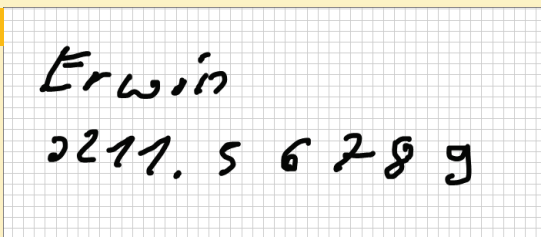 Erwin
0211. 5 6 7 8 9